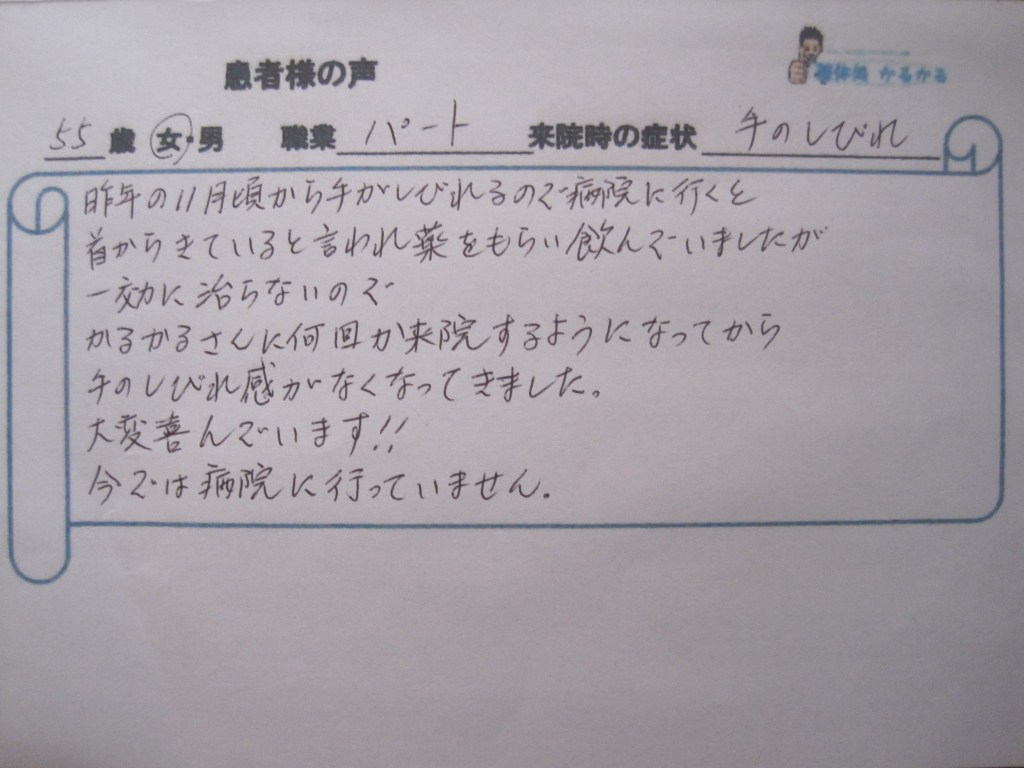 患者様の声
整体処 かるかる
55 歳 女・男 職業 パート 来院時の症状 手のしびれ
昨年の11月頃から手がしびれるので病院に行くと
首からきていると言われ薬をもらい飲んでいましたが
一効に治らないので
かるかるさんに何回か来院するようになってから
手のしびれ感がなくなってきました。
大変喜んでいます!!
今では病院に行っていません。